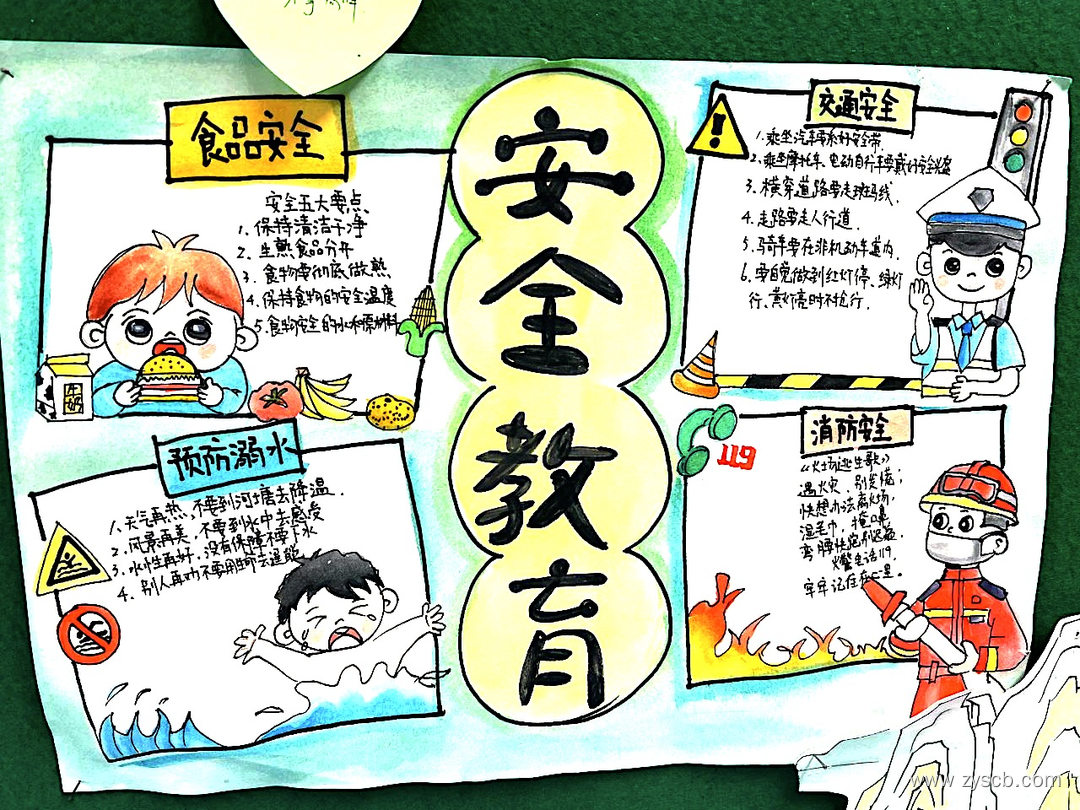 安全教育
食品安全
安全五大要点
1. 保持清洁干净
2. 生熟食品分开
3. 食物要彻底做熟
4. 保持食物的安全温度
5. 食物安全的水和原材料
牛奶
预防溺水
1. 天气再热、不要到河塘去降温.
2. 风景再美、不要到水中去感受
3. 水性再好、没有保障不要下水
4. 别人再劝不要用生命去逞能
交通安全
1. 乘坐汽车要系好安全带.
2. 乘坐摩托车、电动自行车要戴好安全头盔
3. 横穿道路要走斑马线.
4. 走路要走人行道.
5. 骑车要在非机动车道内.
6. 要自觉做到红灯停、绿灯
行、黄灯亮时不抢行.
消防安全
119
《火场逃生歌》
遇火灾、别发慌;
快想办法离火场,
湿毛巾、掩口鼻
弯腰快跑别迟疑
火警电话119.
牢牢记住在心里。
www.zyscb.com